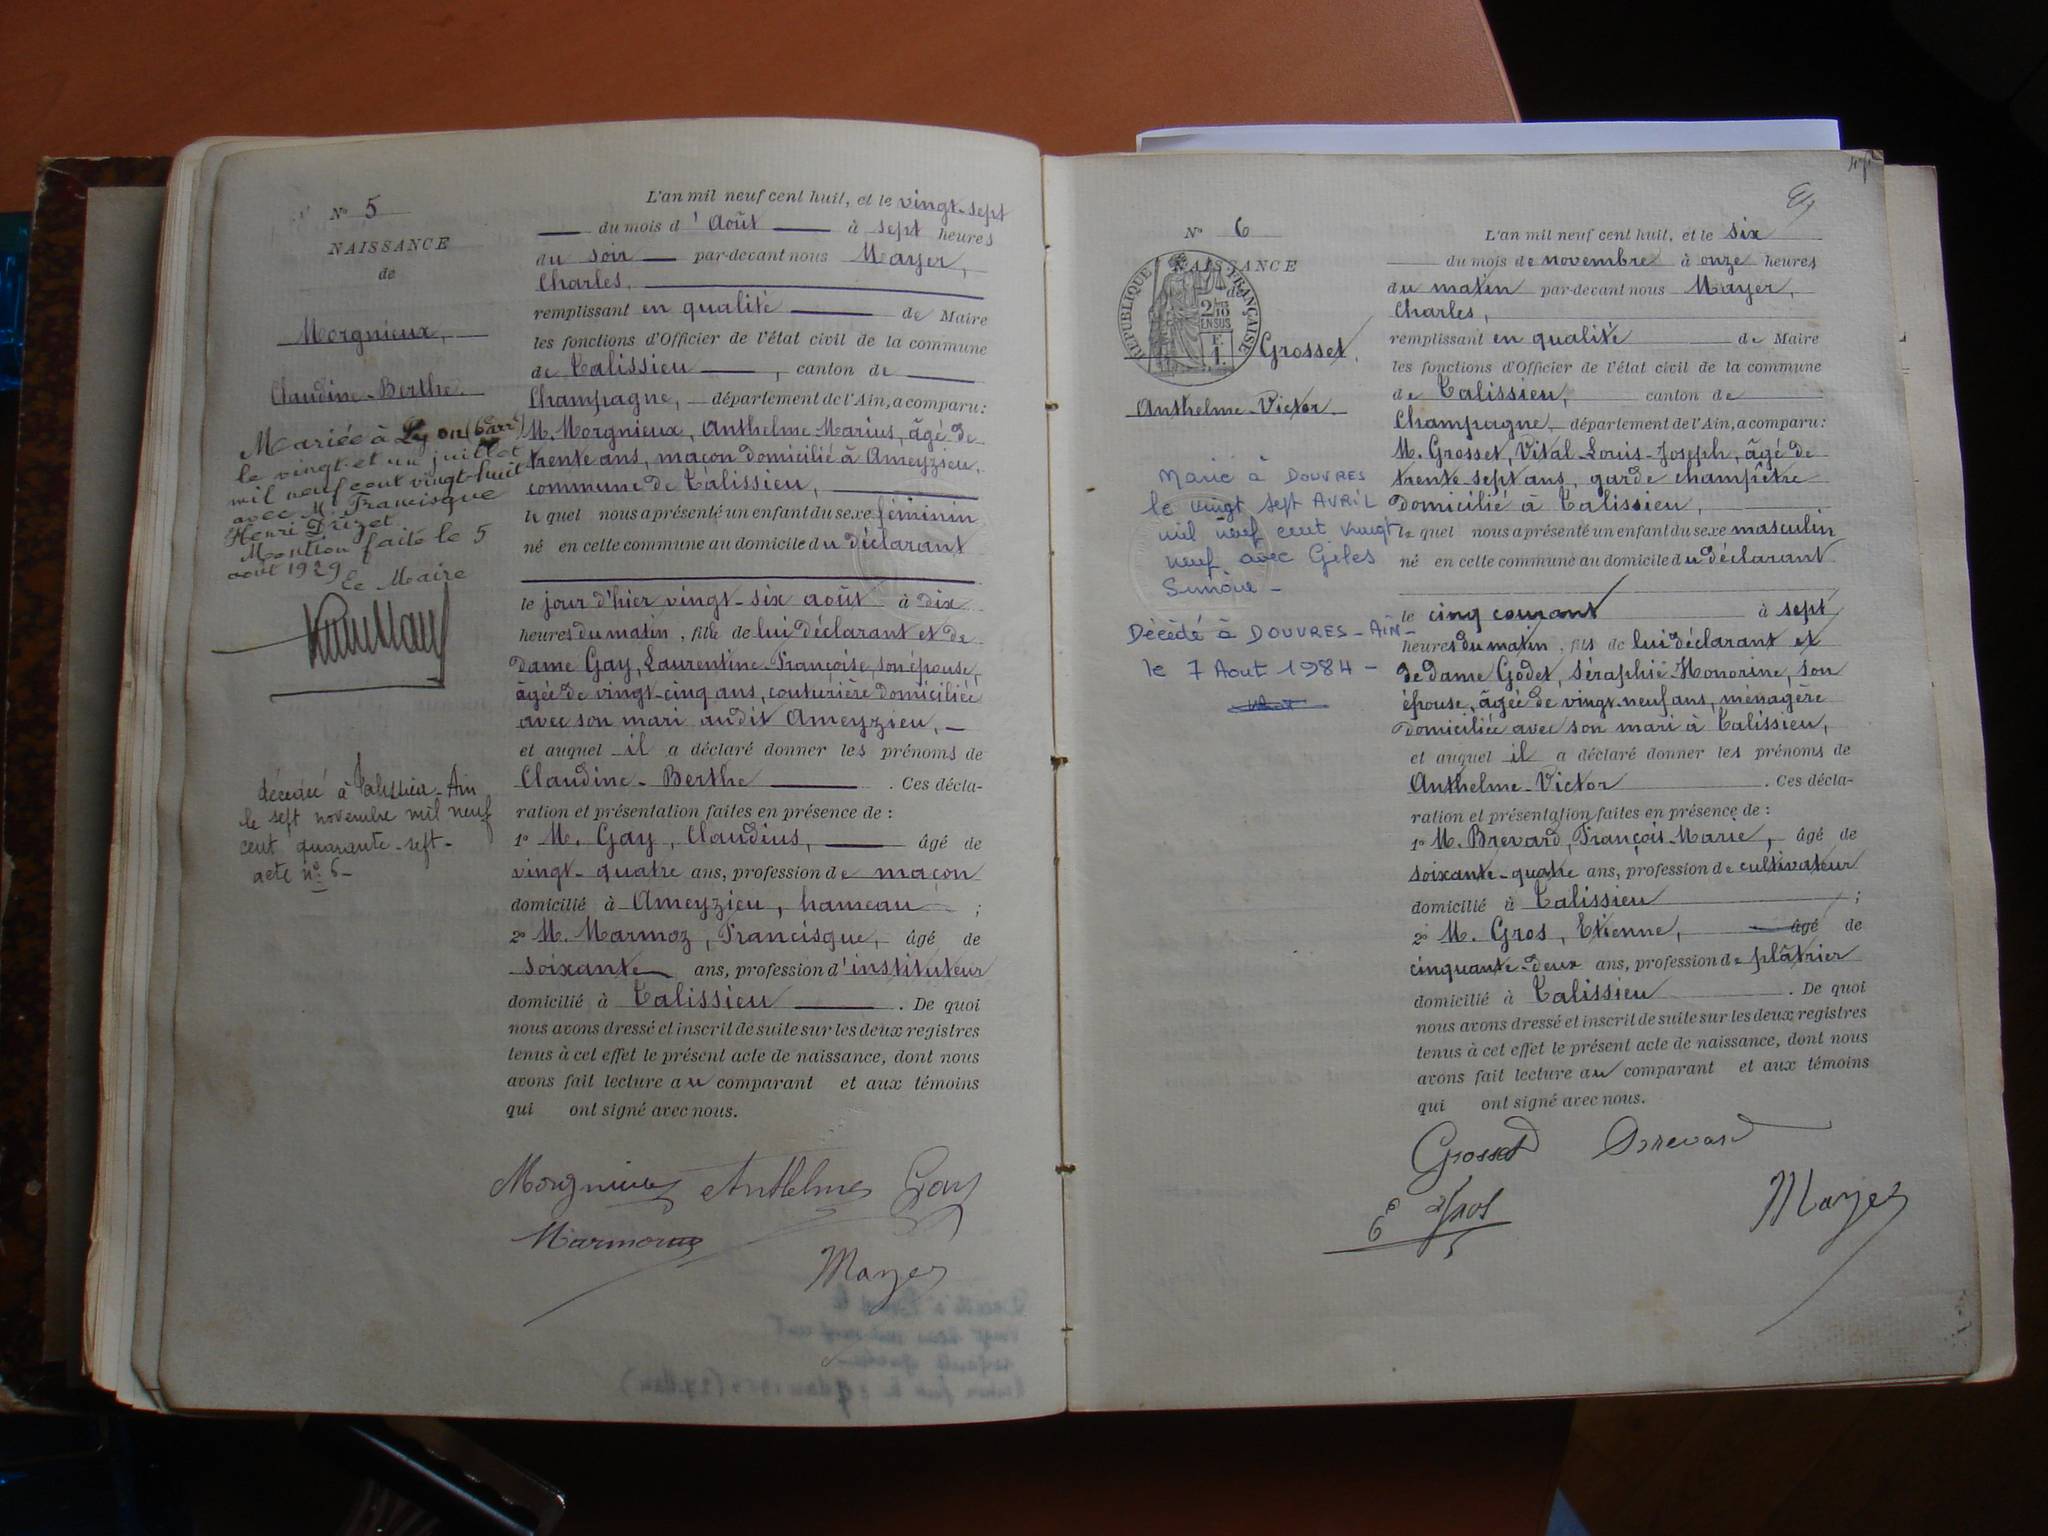 N° 5
NAISSANCE
de
Morgnieux,
Claudine-Berthe.
Mariée à Lyon (6 arrt)
le vingt et un juillet
mil neuf cent vingt-huit
avec Mr Francisque
Henri Drizet
Mention faite le 5
août 1929
le Maire
décédée à Talissieu-Ain
le sept novembre mil neuf
cent quarante-sept-
acte n° 6-
L'an mil neuf cent huit, et le vingt-sept
du mois d'Août à sept heures
du soir par-devant nous Mayer,
Charles,
remplissant en qualité de Maire
les fonctions d'Officier de l'état civil de la commune
de Talissieu, canton de
Champagne, département de l'Ain, a comparu :
M. Morgnieux, Anthelme Marius, âgé de
trente ans, maçon domicilié à Ameyzieu,
commune de Talissieu,
le quel nous a présenté un enfant du sexe féminin
né en cette commune au domicile du déclarant
le jour d'hier vingt-six août à dix
heures du matin, fille de lui déclarant et de
dame Gay, Laurentine-Françoise, son épouse,
âgée de vingt-cinq ans, couturière domiciliée
avec son mari audit Ameyzieu,
et auquel il a déclaré donner les prénoms de
Claudine-Berthe. Ces décla-
ration et présentation faites en présence de :
1° M. Gay, Claudius, âgé de
vingt-quatre ans, profession de maçon
domicilié à Ameyzieu, hameau ;
2° M. Marmoz, Francisque, âgé de
soixante ans, profession d'instituteur
domicilié à Talissieu. De quoi
nous avons dressé et inscrit de suite sur les deux registres
tenus à cet effet le présent acte de naissance, dont nous
avons fait lecture au comparant et aux témoins
qui ont signé avec nous.
Morgnieux Anthelme Gay
Marmoz
Mayer
N° 6
NAISSANCE
de
REPUBLIQUE FRANÇAISE
2/10 EN SUS
F. 1.
Grosset,
Anthelme-Victor
Marié à DOUVRES
le vingt sept AVRIL
mil neuf cent vingt
neuf avec Gelas
Simone -
Décédé à DOUVRES-AIN-
le 7 Aout 1984 -
L'an mil neuf cent huit, et le six
du mois de novembre à onze heures
du matin par-devant nous Mayer,
Charles,
remplissant en qualité de Maire
les fonctions d'Officier de l'état civil de la commune
de Talissieu, canton de
Champagne, département de l'Ain, a comparu :
M. Grosset, Vital-Louis-Joseph, âgé de
trente-sept ans, garde champêtre
domicilié à Talissieu,
le quel nous a présenté un enfant du sexe masculin
né en cette commune au domicile du déclarant
le cinq courant à sept
heures du matin, fils de lui déclarant et
de dame Godet, Séraphie-Honorine, son
épouse, âgée de vingt-neuf ans, ménagère
domiciliée avec son mari à Talissieu,
et auquel il a déclaré donner les prénoms de
Anthelme-Victor. Ces décla-
ration et présentation faites en présence de :
1° M. Brevard, François-Marie, âgé de
soixante-quatre ans, profession de cultivateur
domicilié à Talissieu ;
2° M. Gros, Etienne, âgé de
cinquante-deux ans, profession de plâtrier
domicilié à Talissieu. De quoi
nous avons dressé et inscrit de suite sur les deux registres
tenus à cet effet le présent acte de naissance, dont nous
avons fait lecture au comparant et aux témoins
qui ont signé avec nous.
Grosset Brevard
E Gros
Mayer